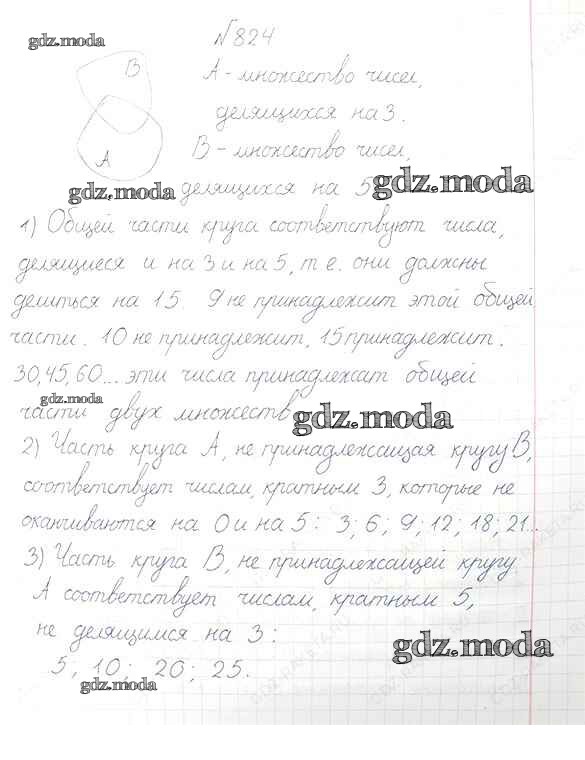 №824
gdz.moda
B
А - множество чисел,
делящихся на 3.
В - множество чисел,
A
gdz.moda делящихся на 5 gdz.moda
1) Общей части круга соответствуют числа,
делящиеся и на 3 и на 5, т е. они должны
делиться на 15. 9 не принадлежит этой общей
части. 10 не принадлежит, 15 принадлежит.
30,45,60... эти числа принадлежат общей
gdz.moda
части двух множеств gdz.moda
2) Часть круга А, не принадлежащая кругу В,
соответствует числам, кратным 3, которые не
оканчиваются на 0 и на 5: 3; 6; 9; 12; 18; 21...
3) Часть круга В, не принадлежащей кругу
А соответствует числам, кратным 5,
не делящимся на 3:
gdz.moda
5; 10; 20; 25.
gdz.moda